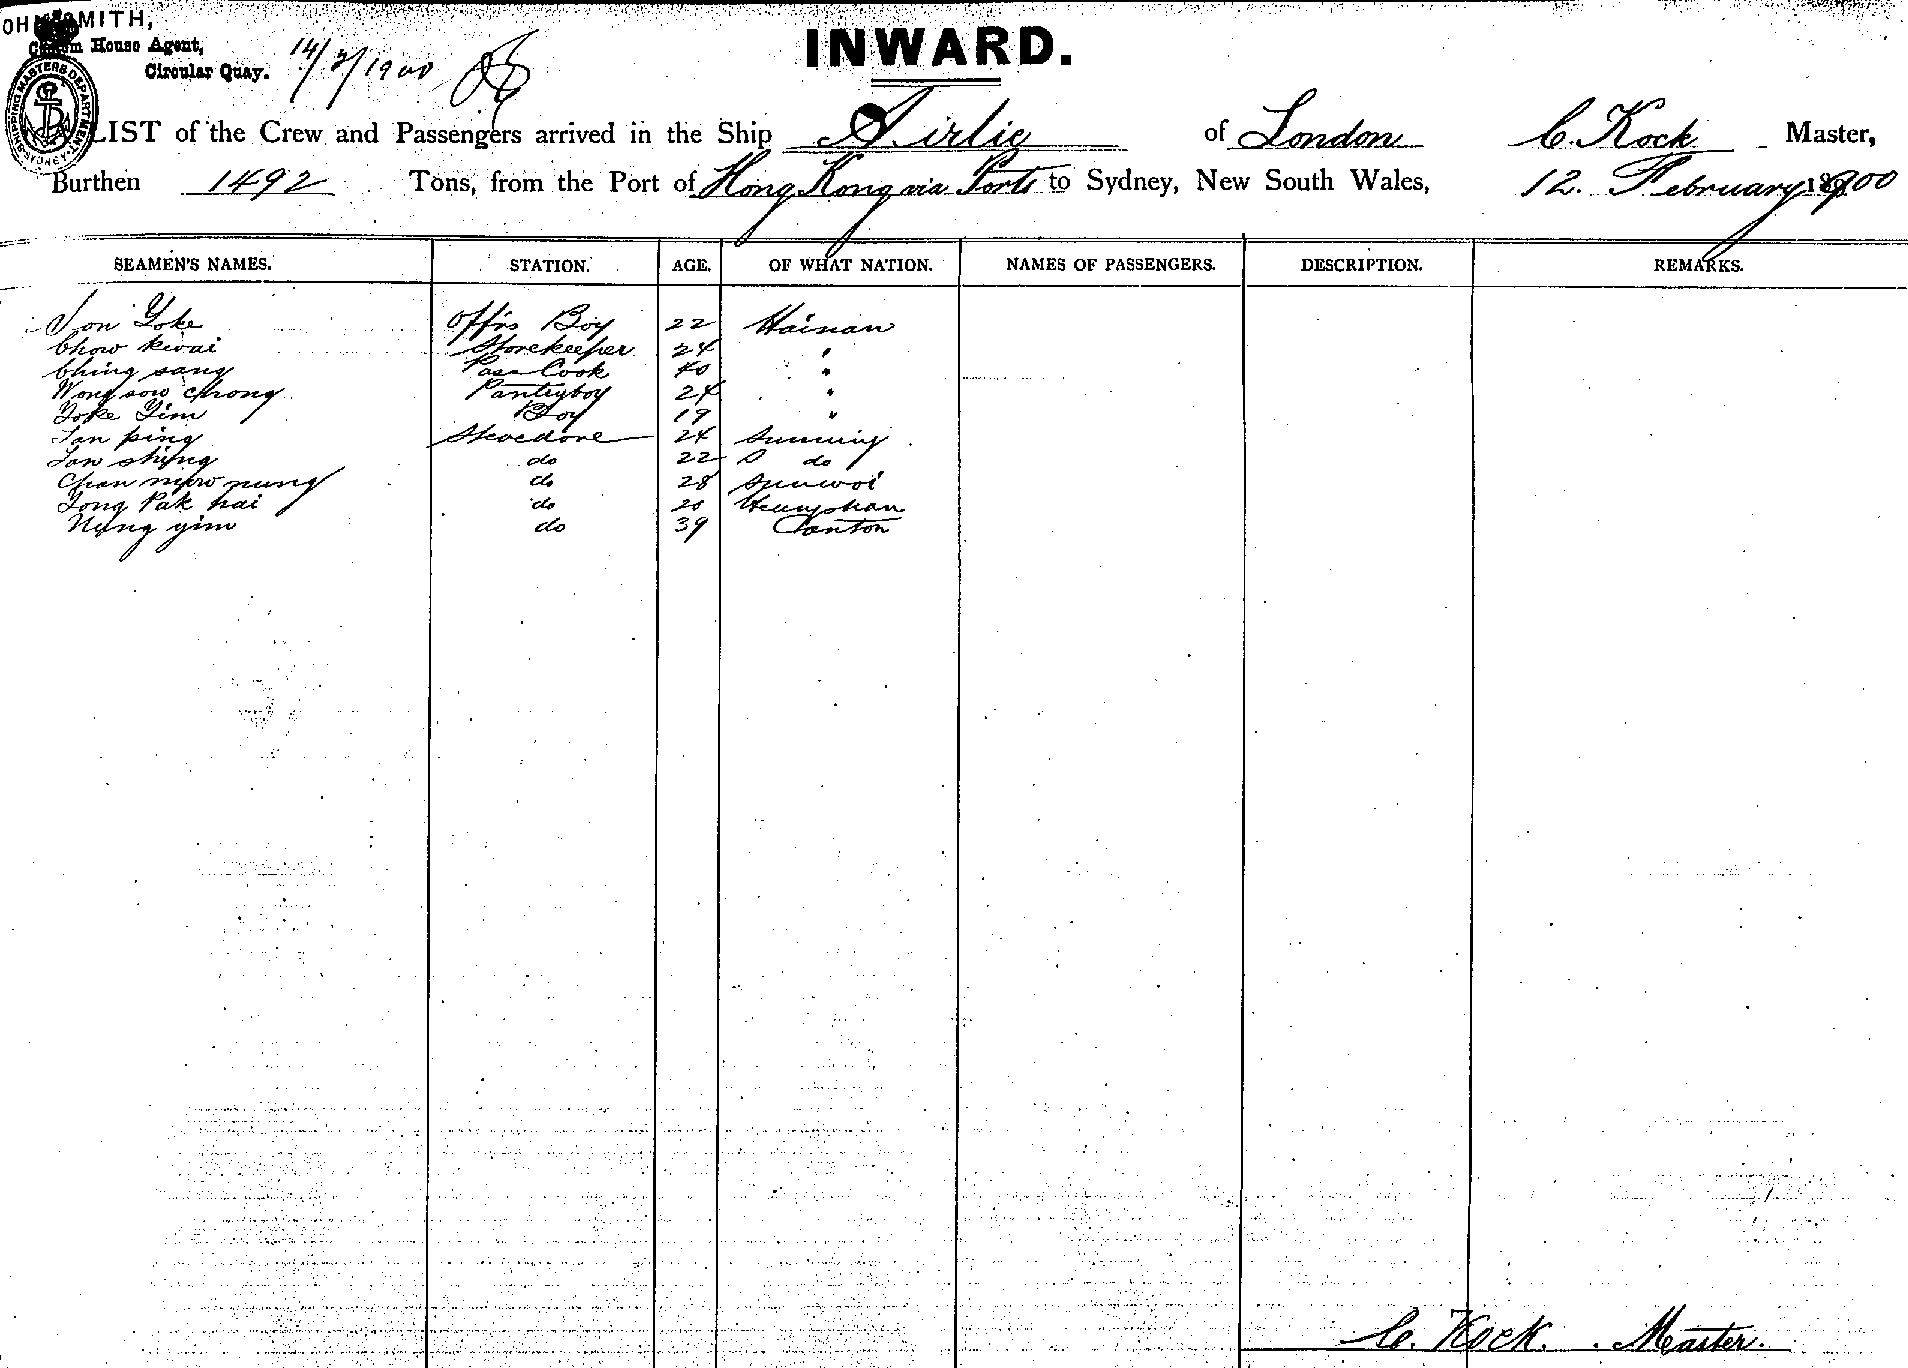 OHN SMITH,
Custom House Agent,
Circular Quay.
14/2/1900
SHIPPING MASTERS DEPARTMENT SYDNEY
INWARD.
LIST of the Crew and Passengers arrived in the Ship Airlie of London C. Kock Master,
Burthen 1492 Tons, from the Port of Hong Kong via Ports to Sydney, New South Wales, 12. February 1900
SEAMEN'S NAMES. STATION. AGE. OF WHAT NATION. NAMES OF PASSENGERS. DESCRIPTION. REMARKS.
Son Yoke Offrs Boy 22 Hainan
Chow kwai Storekeeper 24 "
Ching sang Pass Cook 40 "
Wong sow chong Pantryboy 24 "
Yoke Yim Boy 19 "
Tan ping Stevedore 24 Sunning
Tan shing do 22 do
Chan mow nung do 28 Sunwoi
Tong Pak hai do 20 Heungshan
Nung yim do 39 Canton
C. Kock. Master.